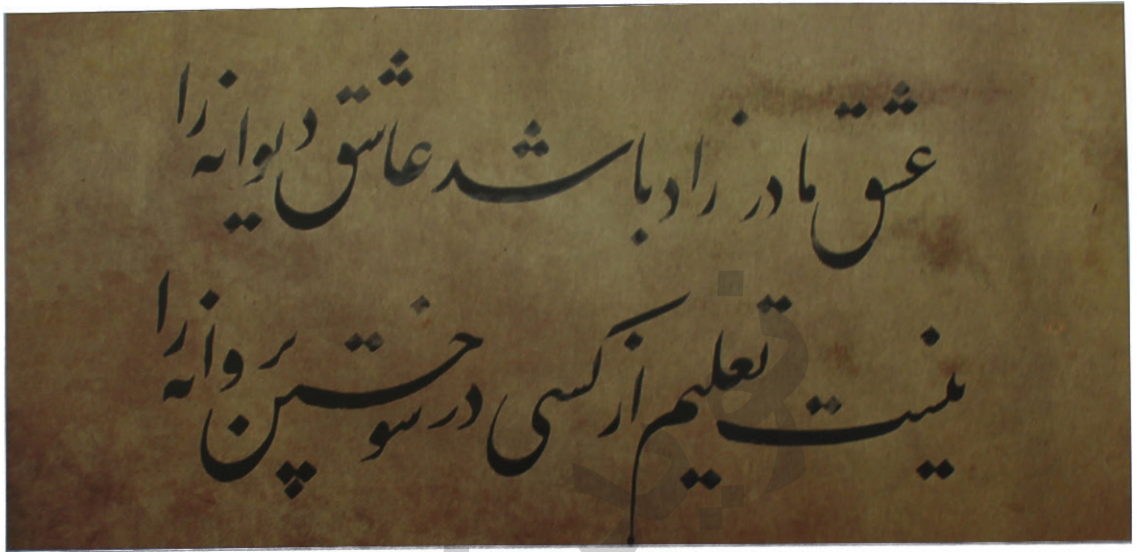 عشق مادر زاد باشد عاشق دیوانه را
نیست تعلیم از کسی در سوختن پروانه را